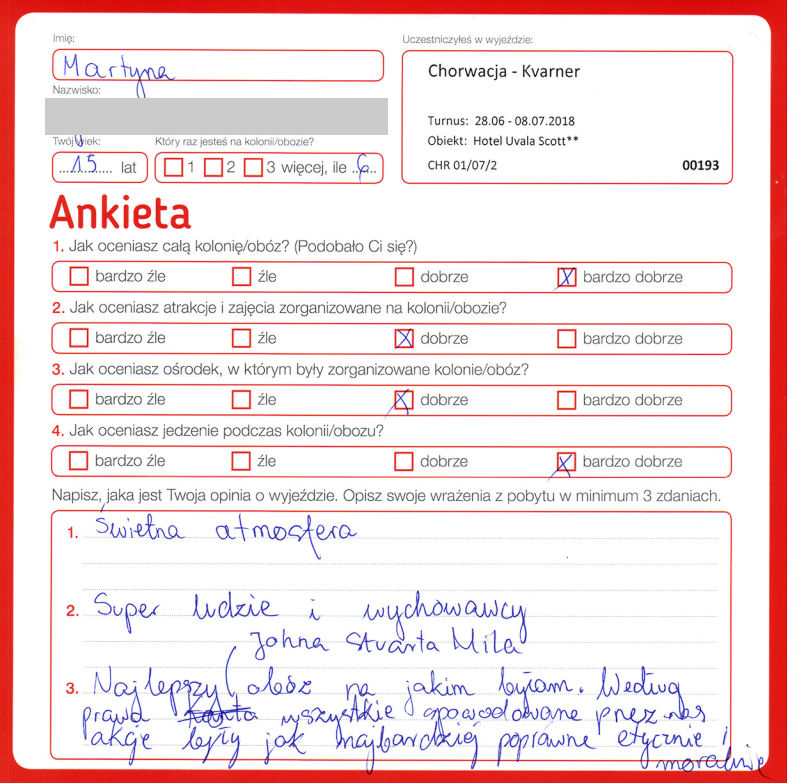 Imię:
Uczestniczyłeś w wyjeździe:
Martyna
Chorwacja - Kvarner
Nazwisko:
Turnus: 28.06 - 08.07.2018
Obiekt: Hotel Uvala Scott**
CHR 01/07/2
00193
Twój wiek:
Który raz jesteś na kolonii/obozie?
15 lat
1 2 3 więcej, ile 6
Ankieta
1. Jak oceniasz całą kolonię/obóz? (Podobało Ci się?)
bardzo źle źle dobrze X bardzo dobrze
2. Jak oceniasz atrakcje i zajęcia zorganizowane na kolonii/obozie?
bardzo źle źle X dobrze bardzo dobrze
3. Jak oceniasz ośrodek, w którym były zorganizowane kolonie/obóz?
bardzo źle źle X dobrze bardzo dobrze
4. Jak oceniasz jedzenie podczas kolonii/obozu?
bardzo źle źle dobrze X bardzo dobrze
Napisz, jaka jest Twoja opinia o wyjeździe. Opisz swoje wrażenia z pobytu w minimum 3 zdaniach.
1. Świetna atmosfera
2. Super ludzie i wychowawcy
Johna Stuarta Mila
3. Najlepszy obóz na jakim byłam. Według
prawa Kanta wszystkie spowodowane przez nas
akcje były jak najbardziej poprawne etycznie i
moralnie